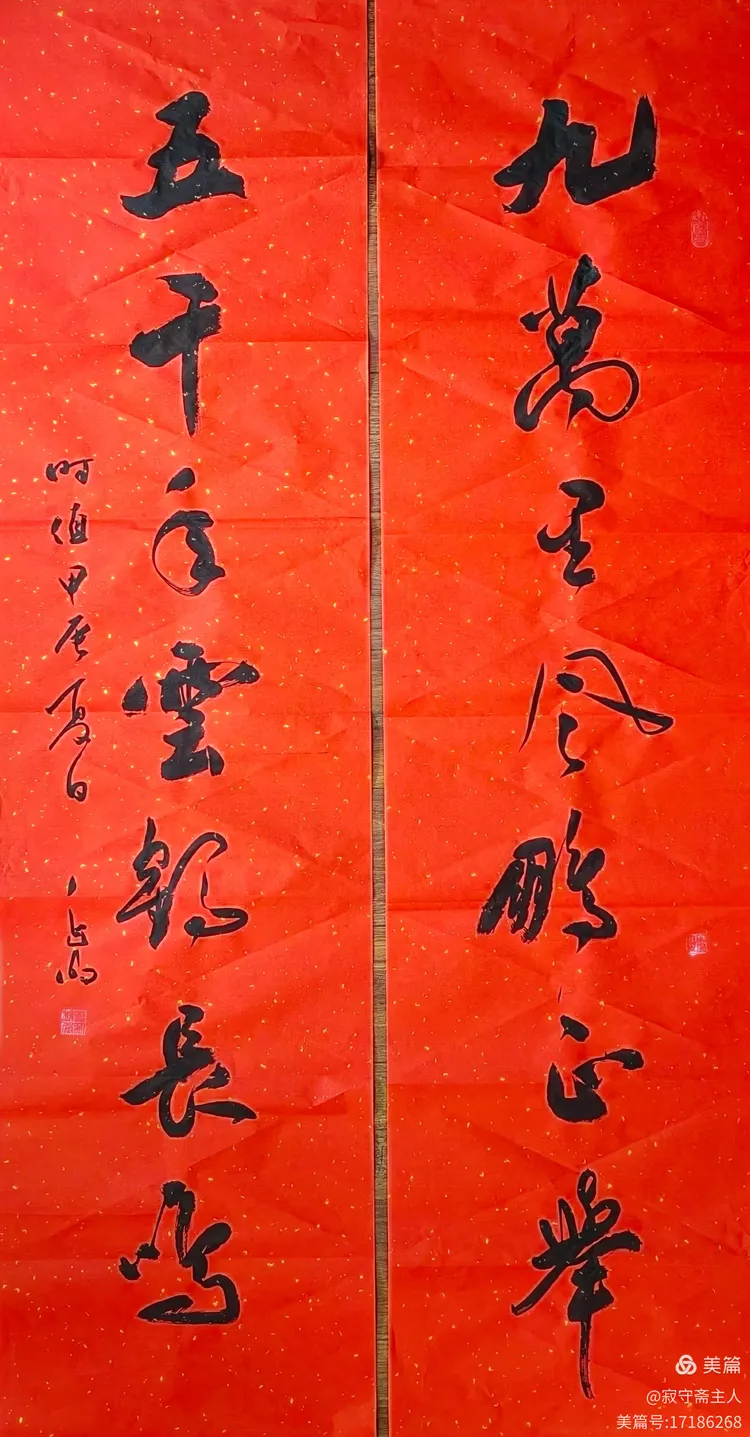 九萬里风鹏正舉
五千年雲鹤長鸣
时值甲辰夏日
美篇
@寂守斋主人
美篇号:17186268